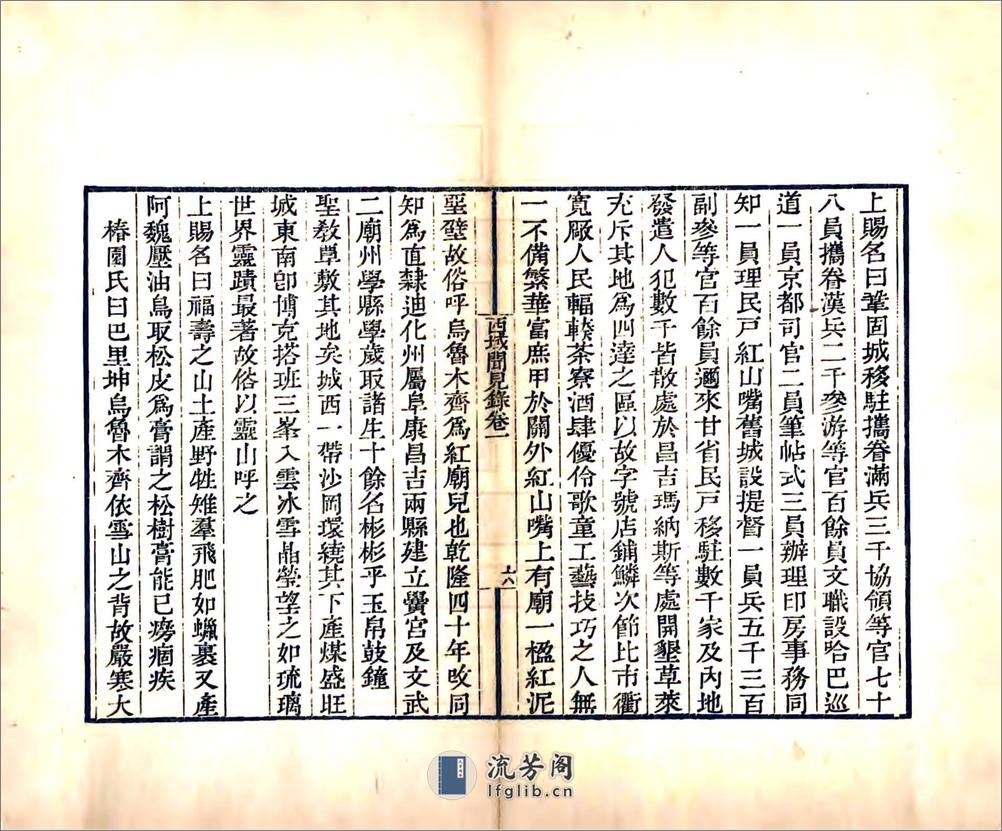 上賜名曰鞏固城移駐攜眷滿兵三千協領等官七十
八員攜眷漢兵二千參游等官百餘員文職設哈巴巡
道一員京都司官二員筆帖式三員辦理印房事務同
知一員理民戸紅山嘴舊城設提督一員兵五千三百
副參等官百餘員邇來甘省民戸移駐數千家及內地
發遣人犯數千皆散處於昌吉瑪納斯等處開墾草萊
充斥其地爲四達之區以故字號店鋪鱗次節比市衢
寛厰人民輻輳茶寮酒肆優伶歌童工藝技巧之人無
一不備繁華富庶甲於關外紅山嘴上有廟一楹紅泥
西域聞見錄卷一
十六
堊壁故俗呼烏魯木齊爲紅廟兒也乾隆四十年攺同
知爲直隸迪化州屬阜康昌吉兩縣建立黌宮及文武
二廟州學縣學歲取諸生十餘名彬彬乎玉帛鼓鐘
聖敎覃敷其地矣城西一帶沙岡環繞其下產煤盛旺
城東南卽博克塔班三峯入雲冰雪晶瑩望之如琉璃
世界靈蹟最著故俗以靈山呼之
上賜名曰福壽之山土產野牲雉羣飛肥如蠟裹又產
阿魏壓油鳥取松皮爲膏謂之松樹膏能已癆痼疾
椿園氏曰巴里坤烏魯木齊依雪山之背故嚴寒大
流芳阁
lfglib.cn